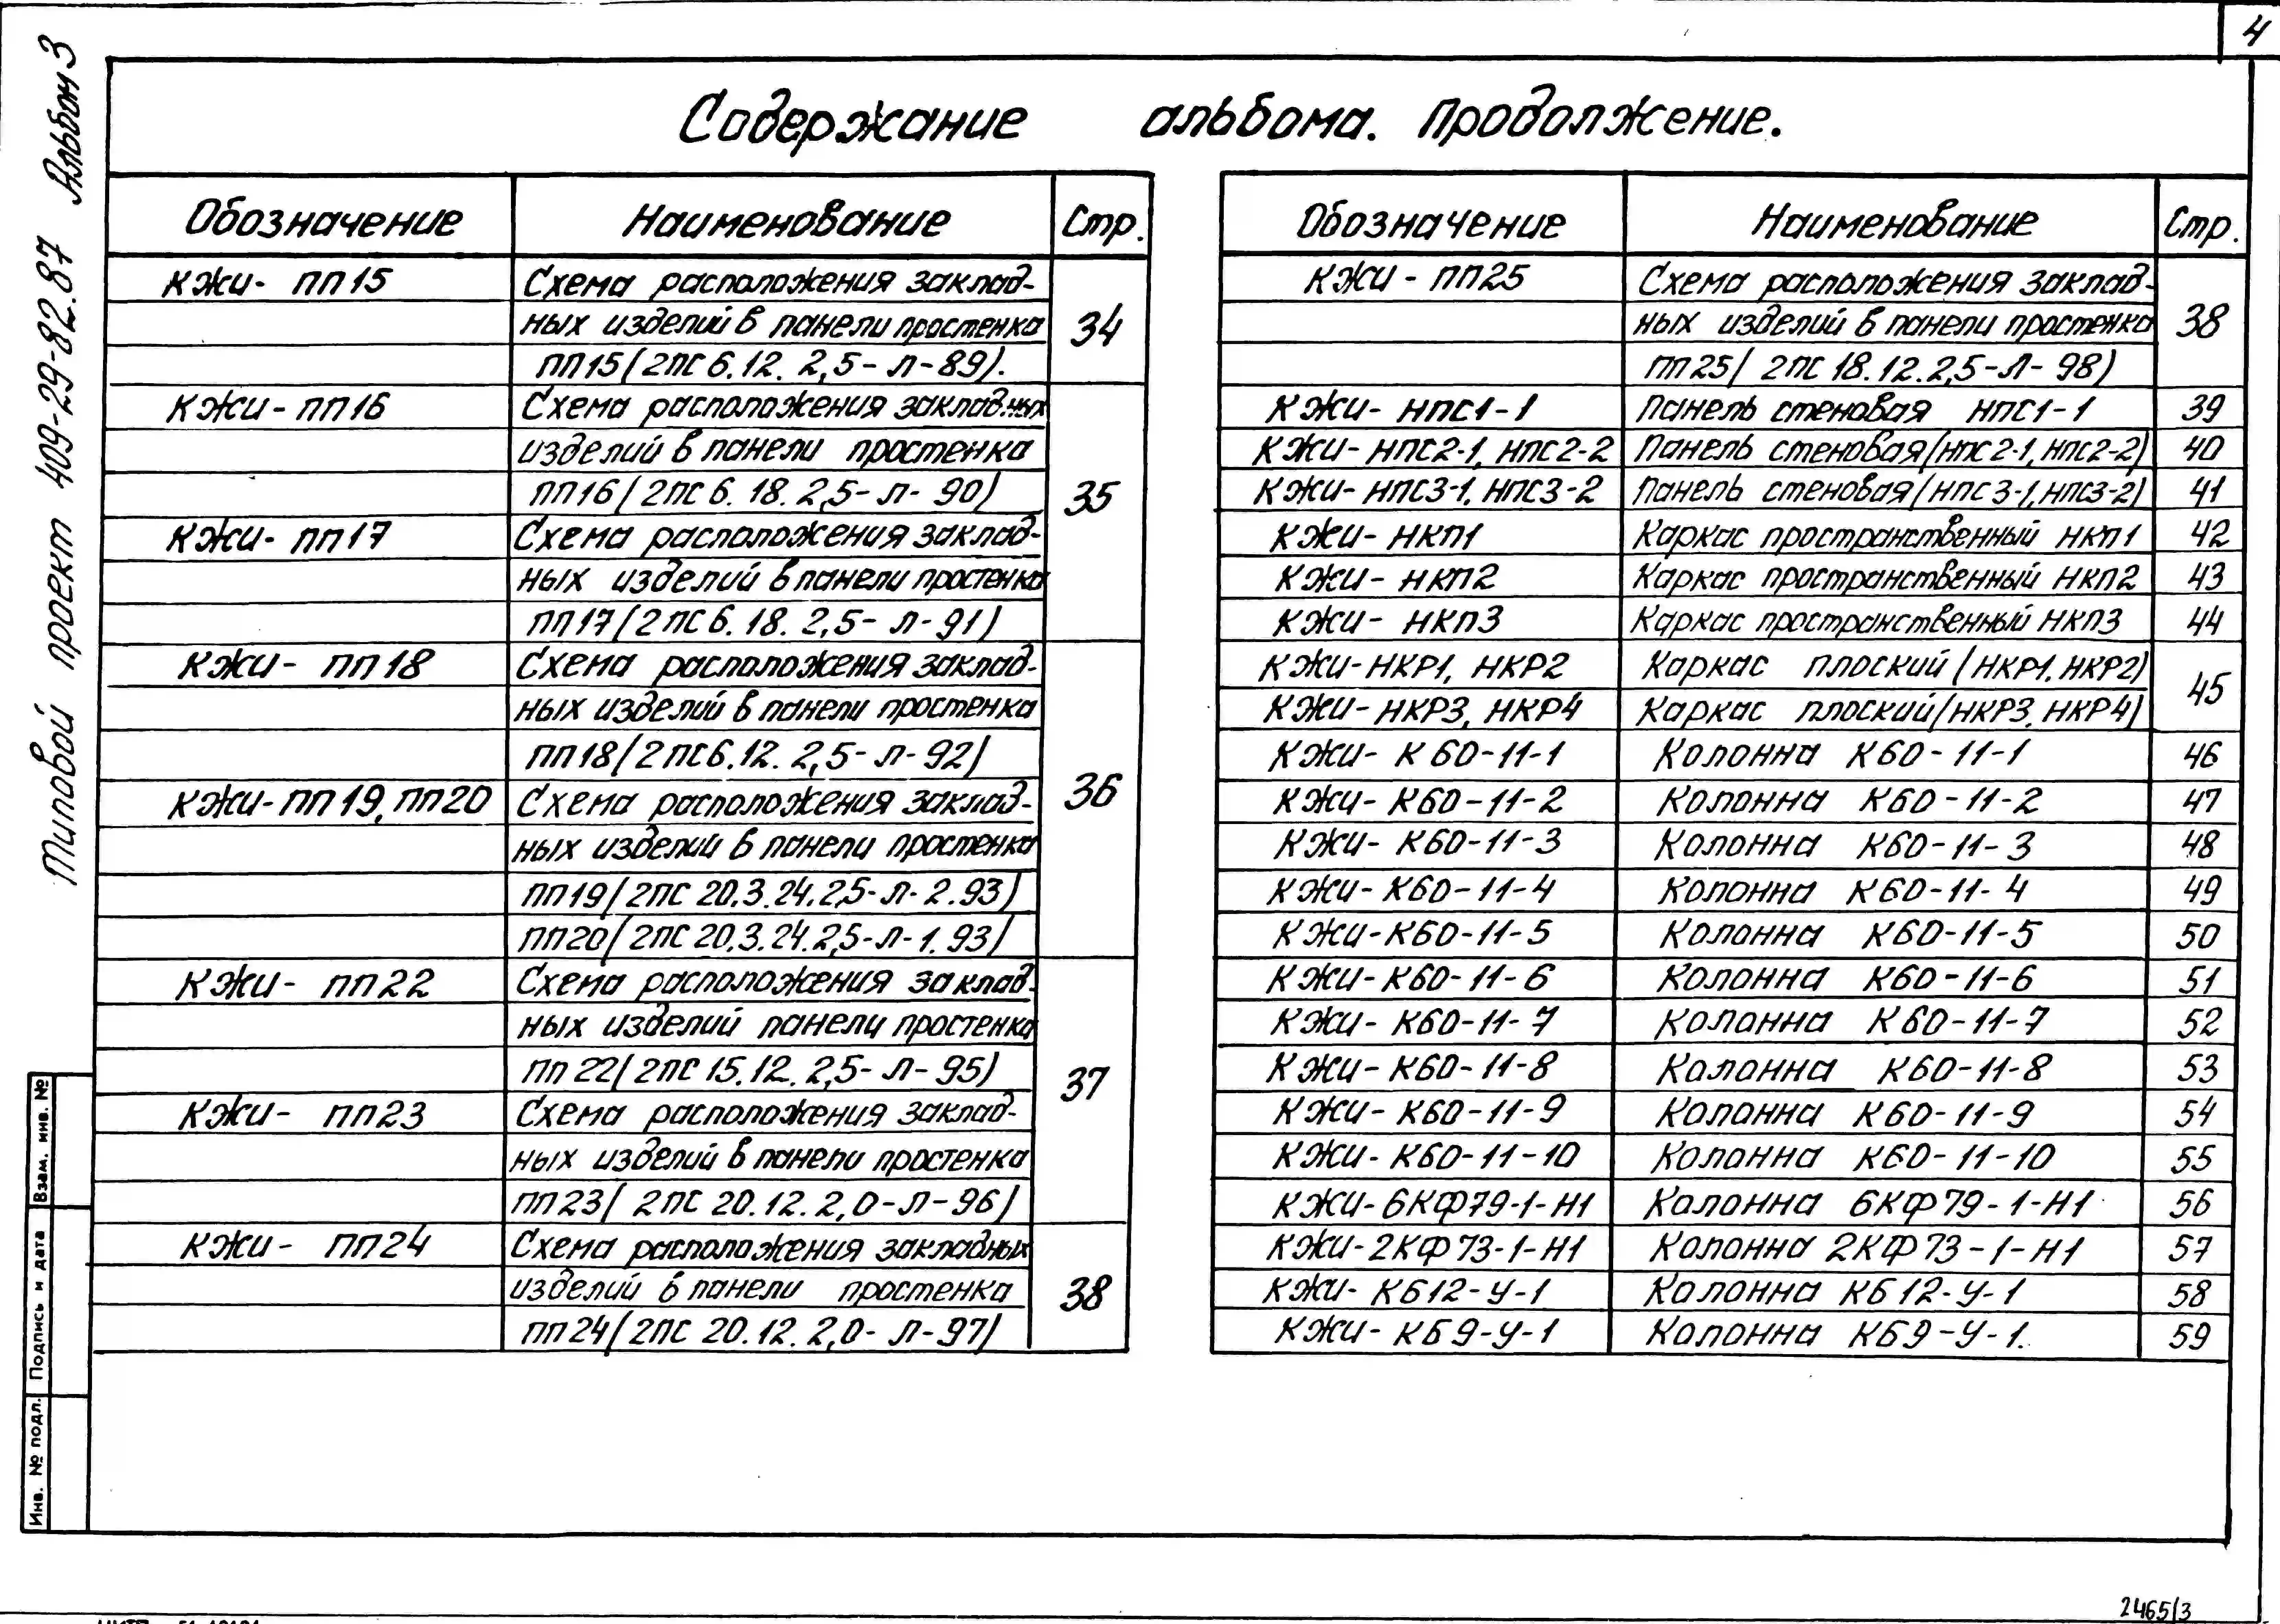 4
Типовой проект 409-29-82.87 Альбом 3
Содержание альбома. Продолжение.
Обозначение Наименование Стр.
КЖИ- ПП15 Схема расположения заклад-
ных изделий в панели простенка 34
ПП15(2ПС6.12. 2,5-Л-89).
КЖИ-ПП16 Схема расположения закладных
изделий в панели простенка
ПП16(2ПС6.18.2,5-Л-90) 35
КЖИ-ПП17 Схема расположения заклад-
ных изделий в панели простенка
ПП17(2ПС6.18.2,5-Л-91)
КЖИ- ПП18 Схема расположения заклад-
ных изделий в панели простенка
ПП18(2ПС6.12. 2,5-Л-92)
КЖИ-ПП19, ПП20 Схема расположения заклад- 36
ных изделий в панели простенка
ПП19(2ПС 20.3.24.2,5-Л-2.93)
ПП20(2ПС 20.3.24.2,5-Л-1.93)
КЖИ- ПП22 Схема расположения заклад-
ных изделий панели простенка
ПП22(2ПС 15.12. 2,5-Л-95) 37
КЖИ- ПП23 Схема расположения заклад-
ных изделий в панели простенка
ПП23(2ПС 20.12. 2,0-Л-96)
КЖИ- ПП24 Схема расположения закладных
изделий в панели простенка 38
ПП24(2ПС 20.12. 2,0-Л-97)
Обозначение Наименование Стр.
КЖИ- ПП25 Схема расположения заклад-
ных изделий в панели простенка 38
ПП25(2ПС 18.12.2,5-Л-98)
КЖИ- НПС1-1 Панель стеновая НПС1-1 39
КЖИ-НПС2-1, НПС2-2 Панель стеновая(НПС2-1, НПС2-2) 40
КЖИ-НПС3-1, НПС3-2 Панель стеновая(НПС3-1, НПС3-2) 41
КЖИ- НКП1 Каркас пространственный НКП1 42
КЖИ- НКП2 Каркас пространственный НКП2 43
КЖИ- НКП3 Каркас пространственный НКП3 44
КЖИ-НКР1, НКР2 Каркас плоский (НКР1, НКР2) 45
КЖИ-НКР3, НКР4 Каркас плоский(НКР3, НКР4)
КЖИ- К60-11-1 Колонна К60-11-1 46
КЖИ- К60-11-2 Колонна К60-11-2 47
КЖИ- К60-11-3 Колонна К60-11-3 48
КЖИ- К60-11-4 Колонна К60-11-4 49
КЖИ-К60-11-5 Колонна К60-11-5 50
КЖИ-К60-11-6 Колонна К60-11-6 51
КЖИ- К60-11-7 Колонна К60-11-7 52
КЖИ-К60-11-8 Колонна К60-11-8 53
КЖИ- К60-11-9 Колонна К60-11-9 54
КЖИ- К60-11-10 Колонна К60-11-10 55
КЖИ-6КФ79-1-Н1 Колонна 6КФ79-1-Н1 56
КЖИ-2КФ73-1-Н1 Колонна 2КФ73-1-Н1 57
КЖИ- КБ12-У-1 Колонна КБ12-У-1 58
КЖИ- КБ9-У-1 Колонна КБ9-У-1. 59
Взам. инв. №
Подпись и дата
Инв. № подл.
2465/3